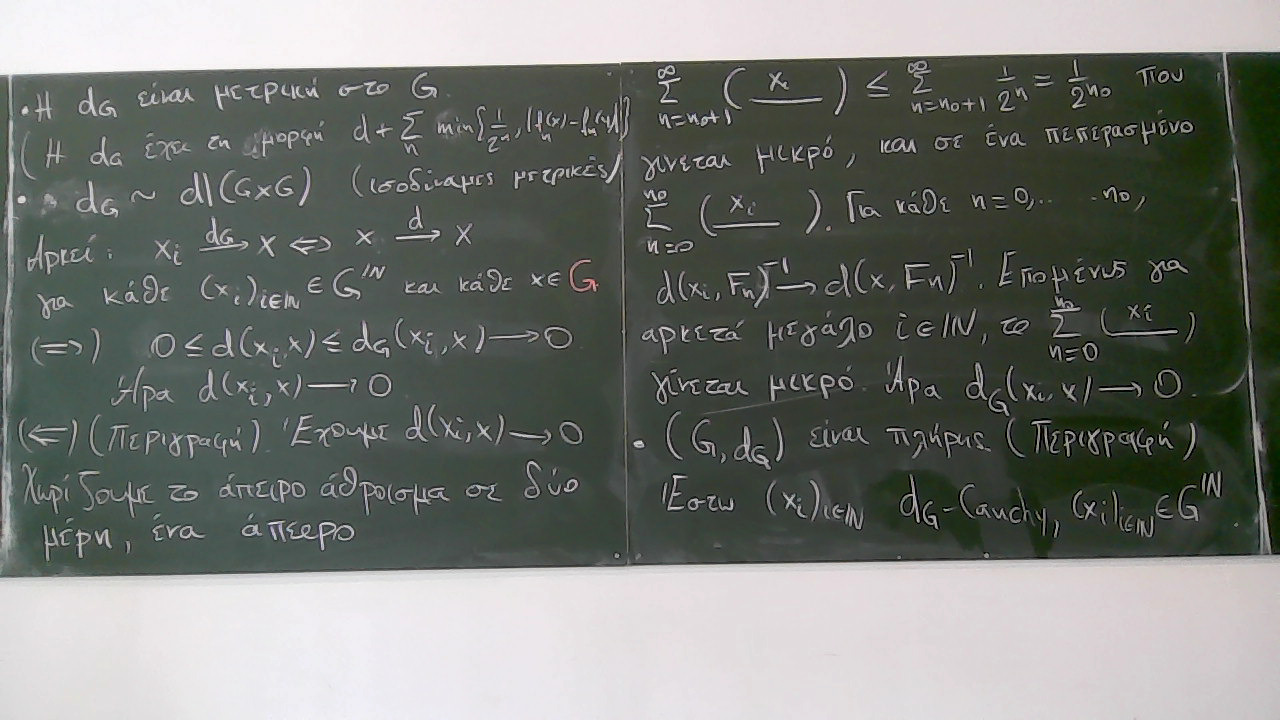 • Η dG είναι μετρική στο G.
(Η dG έχει τη μορφή d + Σ_n min{1/2^n, |f_n(x) - f_n(y)|})
• dG ~ d|(G×G) (ισοδύναμες μετρικές)
Αρκεί: x_i →^{dG} x ⇔ x →^{d} x
για κάθε (x_i)_{i∈ℕ} ∈ G^ℕ και κάθε x∈G
(⇒) 0 ≤ d(x_i, x) ≤ d_G(x_i, x) → 0
Άρα d(x_i, x) → 0
(⇐) (Περιγραφή). Έχουμε d(x_i, x) → 0
Χωρίζουμε το άπειρο άθροισμα σε δύο
μέρη, ένα άπειρο
Σ_{n=n_0+1}^{∞} ( x_i ___ ) ≤ Σ_{n=n_0+1}^{∞} 1/2^n = 1/2^{n_0} που
γίνεται μικρό, και σε ένα πεπερασμένο
Σ_{n=0}^{n_0} ( x_i ___ ). Για κάθε n=0,... n_0,
d(x_i, F_n)^{-1} → d(x, F_n)^{-1}. Επομένως για
αρκετά μεγάλο i∈ℕ, το Σ_{n=0}^{n_0} ( x_i ___ )
γίνεται μικρό. Άρα d_G(x_i, x) → 0.
• (G, d_G) είναι πλήρης (Περιγραφή)
Έστω (x_i)_{i∈ℕ} d_G-Cauchy, (x_i)_{i∈ℕ} ∈ G^ℕ.